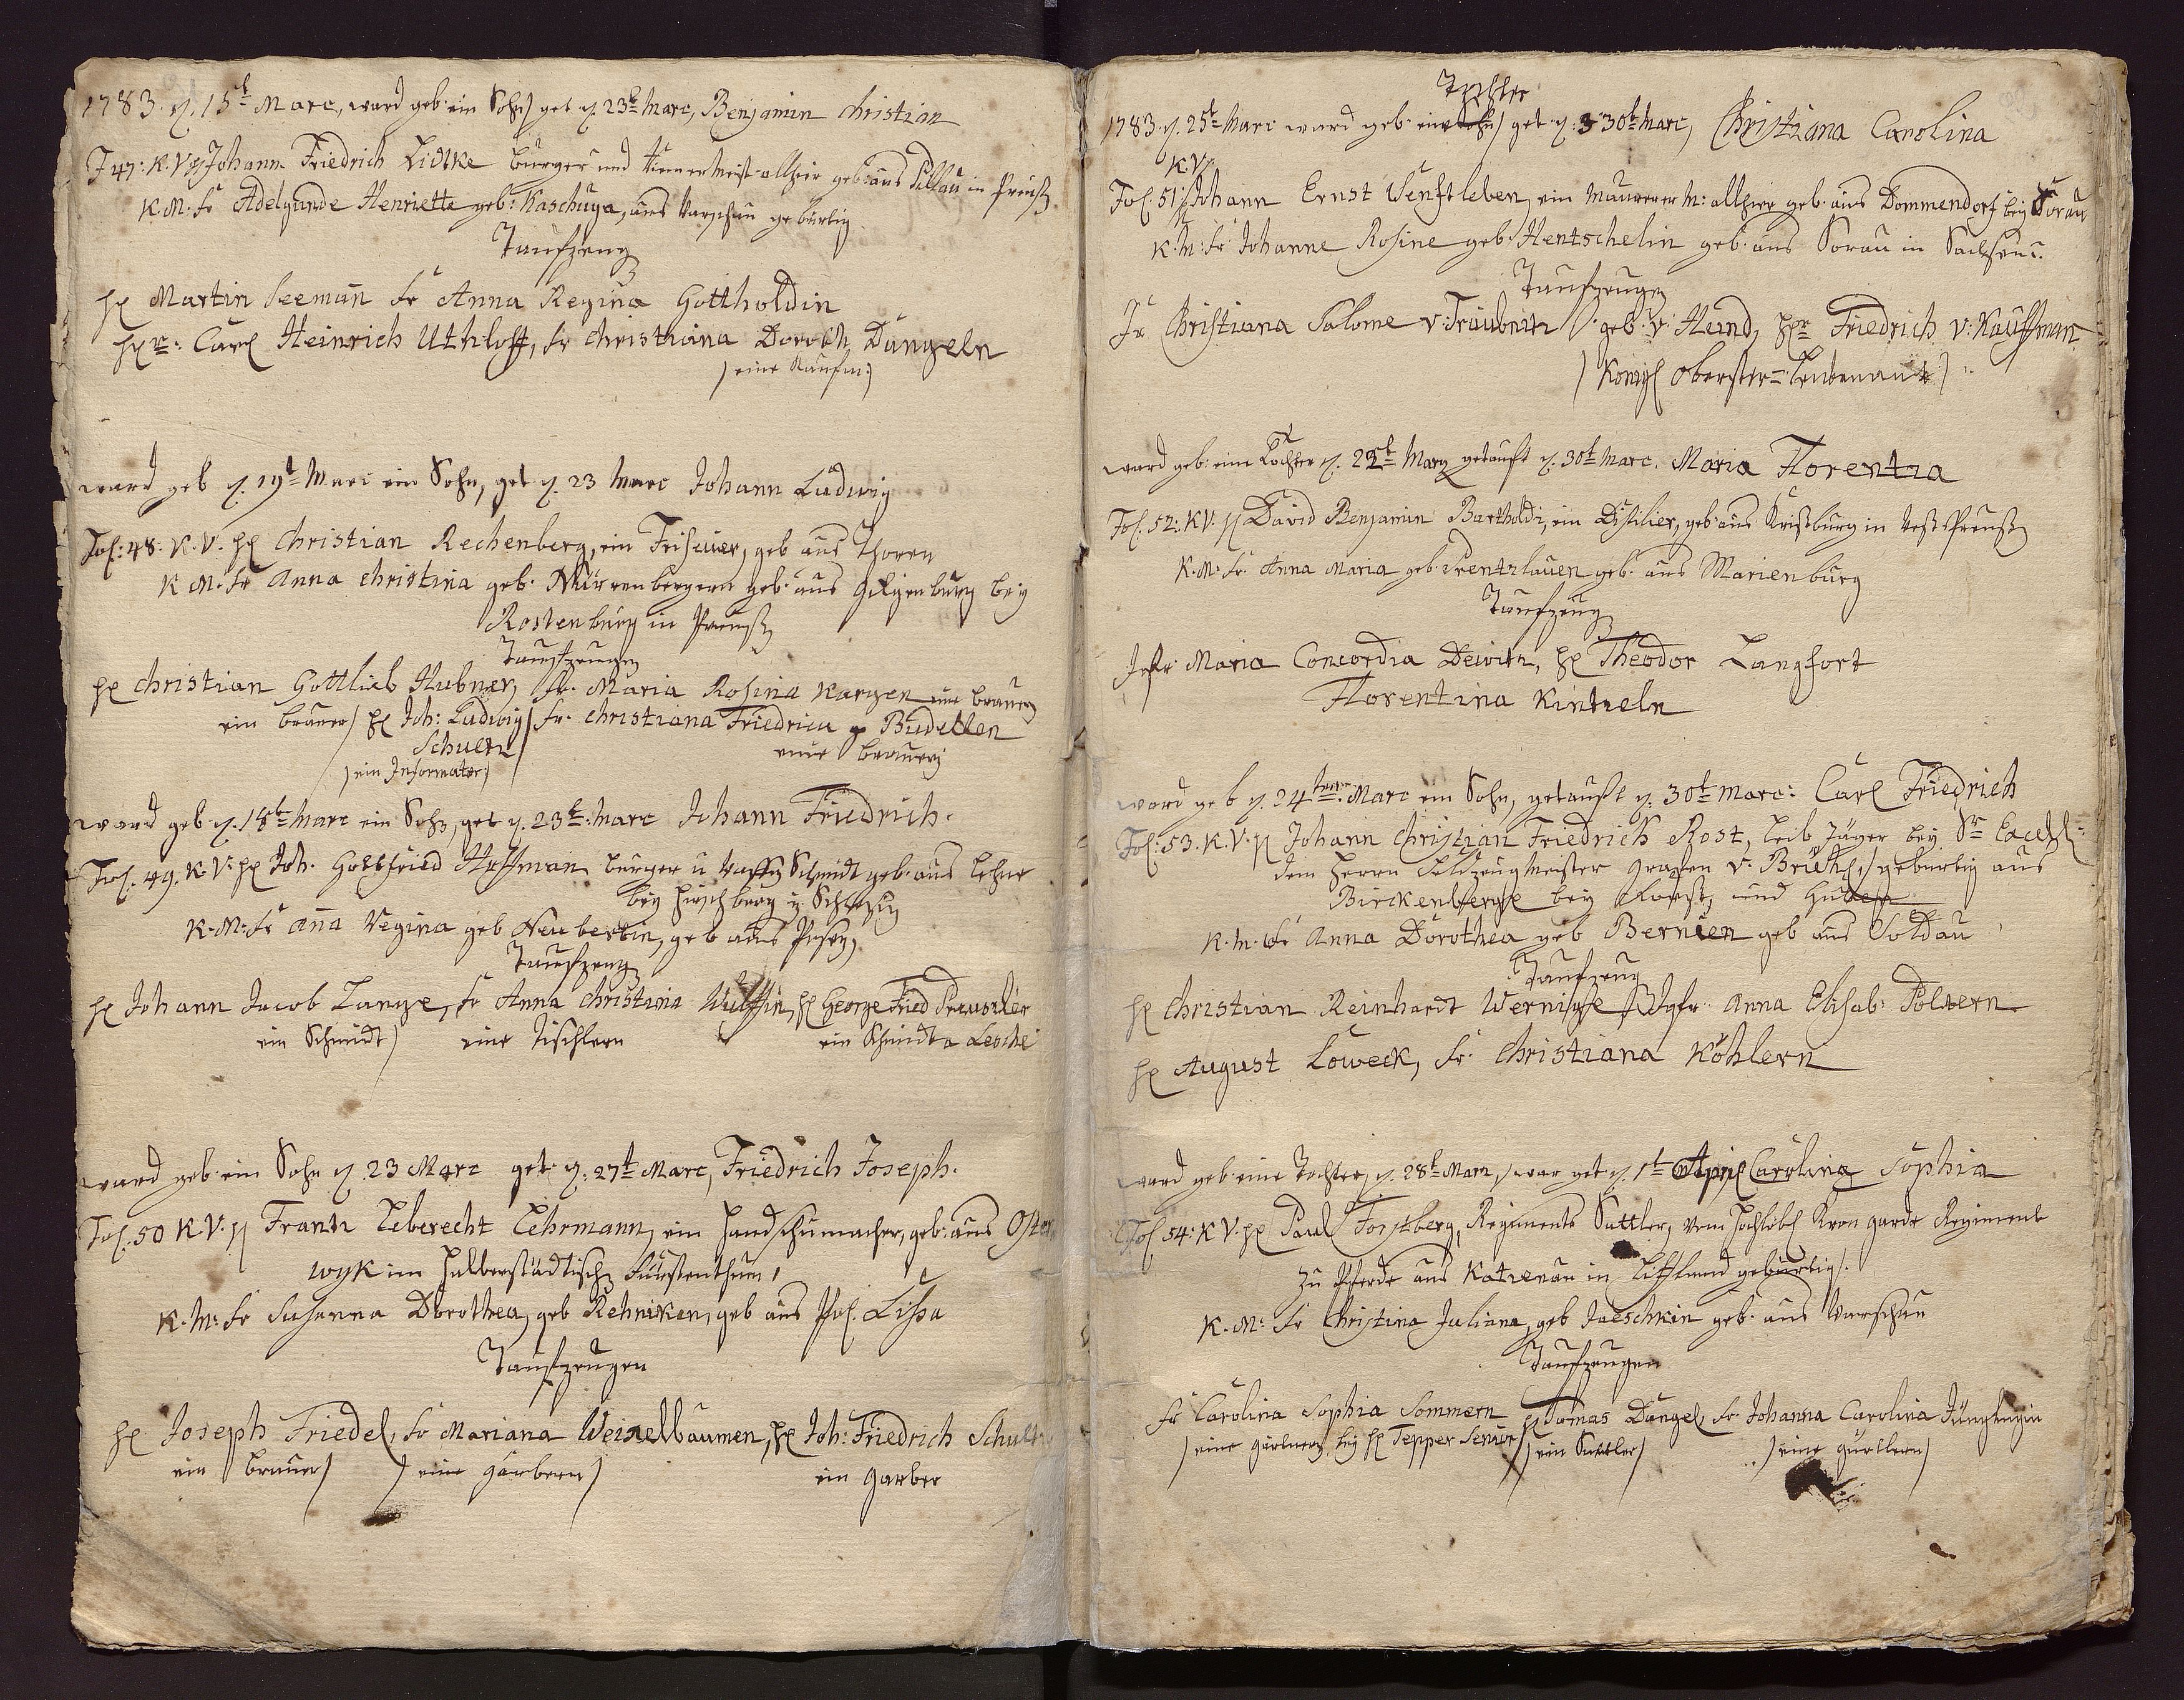 1783. d. 15t Marc, ward geb. ein Sohn get d. 23t Marc, Benjamin Christian
F 47: K. V. H Johann Friedrich Lidtke burger und allhier geb. aus Pillau in Preuß
K. M. Fr Adelgunde Henriette geb: Kaschuga, aus Warschau gebürtig
Taufzeug
H Martin Seeman Fr Anna Regina Gottholdin
Hr. Carl Heinrich Uthloff, Fr Christiana Doroth Dangeln
eine Kaufm:
ward geb d. 19t Marc ein Sohn, get d. 23 Marc Johann Ludwig
Fol: 48. K. V. H Christian Rechenberg, ein Friseuer, geb aus Thoren
K M. Fr Anna Christina geb. Nürrenbergern geb. aus Gilgenburg bey
Rostenburg in Preuß
Taufzeugen
H Christian Gottlieb Hubner, Fr. Maria Rosina Kargen eine brauern
ein brauer H Joh: Ludwig Fr. Christiana Friedrica Budellen
Schultz eine brauerin
ein Informator:
ward geb d. 18t Marc ein Sohn, get d. 23t Marc Johann Friedrich.
Fol. 49. K. V. H Joh. Gottfried Hoffman burger u Waffen Schmidt geb. aus Lehne
bey Hirschberg in Schlesien
K. M. Fr Anna Regina geb Neubertin, geb aus Posen,
Taufzeug
H Johann Jacob Lange, Fr Anna Christina Wulffin, H George Fried
ein Schmidt eine Tischlern ein Schmidt a Lesche
ward geb. ein Sohn d. 23 Marc get. d. 27t Marc, Friedrich Joseph.
Fol. 50 K. V. H Frantz Leberecht Lehrmann, ein Handschumacher, geb: aus Oster
wyk im Halberstädtischen Fürstenthum,
K. M: Fr Susanna Dorothea, geb Rehniken, geb aus Pol. Lissa
Taufzeugen
H Joseph Friedel, Fr Mariana Weixelbaumen, H Joh: Friedrich Schultz
ein brauer eine Garbern ein Garber
Tochter
1783. d. 25t Marc ward geb. ein Sohn get d. 3 30t Marc, Christiana Carolina
K. V.
Fol. 51. H Johann Ernst Senftleben, ein Maurer M: allhier geb. aus Dommendorf bey Sorau
K. M: Fr Johanne Rosine geb. Hentschelin geb. aus Sorau in Sachsen.
Taufzeugen
Fr Christiana Salome v. Traubnitz geb: v. Heind, Hr Friedrich v. Kauffman
Königl Oberster-Leutenant
ward geb: eine Tochter d. 22t Marz getauft d. 30t Marc. Maria Florentia
Fol. 52: K V. H David Benjamin Bartholdi, ein Distilier, geb. aus Krißburg in West Preuß
K. M. Fr. Anna Maria geb. Prentzlauen geb. aus Marienburg
Taufzeug
Jgfr: Maria Concordia Dewitz, H Theodor Langfort
Florentina Kintzeln
ward geb d. 24ten Marc ein Sohn, getauft d. 30t Marc: Carl Friedrich
Fol: 53. K. V. H Johann Christian Friedrich Rost, Leib Jäger bey Sr Excell:
dem Herrn Feldzeugmeister Grafen v. Brühl, gebürtig aus
Birckenberge bey Forst, und
K. M. Fr Anna Dorothea geb Bernien geb aus Soldau
Taufzeug
H Christian Reinhardt Wernicke Jgfr. Anna Elisab: Poltern
H August Loweck, Fr. Christiana Köhlern
ward geb. eine Tochter, d. 28t Marc, war get d. 1t April Carolina Sophia
Fol 54: K V. H Paul Forstberg, Regiments Sattler, vom Hochlöbl Kron garde Regiment
zu Pferde aus Katzenau in Liffland gebürtig.
K. M: Fr Christina Juliana, geb Jaeschkin geb. aus Warschau
Taufzeugen
Fr Carolina Sophia Sommern H Tomas Dangel, Fr Johanna Carolina
eine gärtnern bey H Tepper Senior ein Sattler eine gürtlern